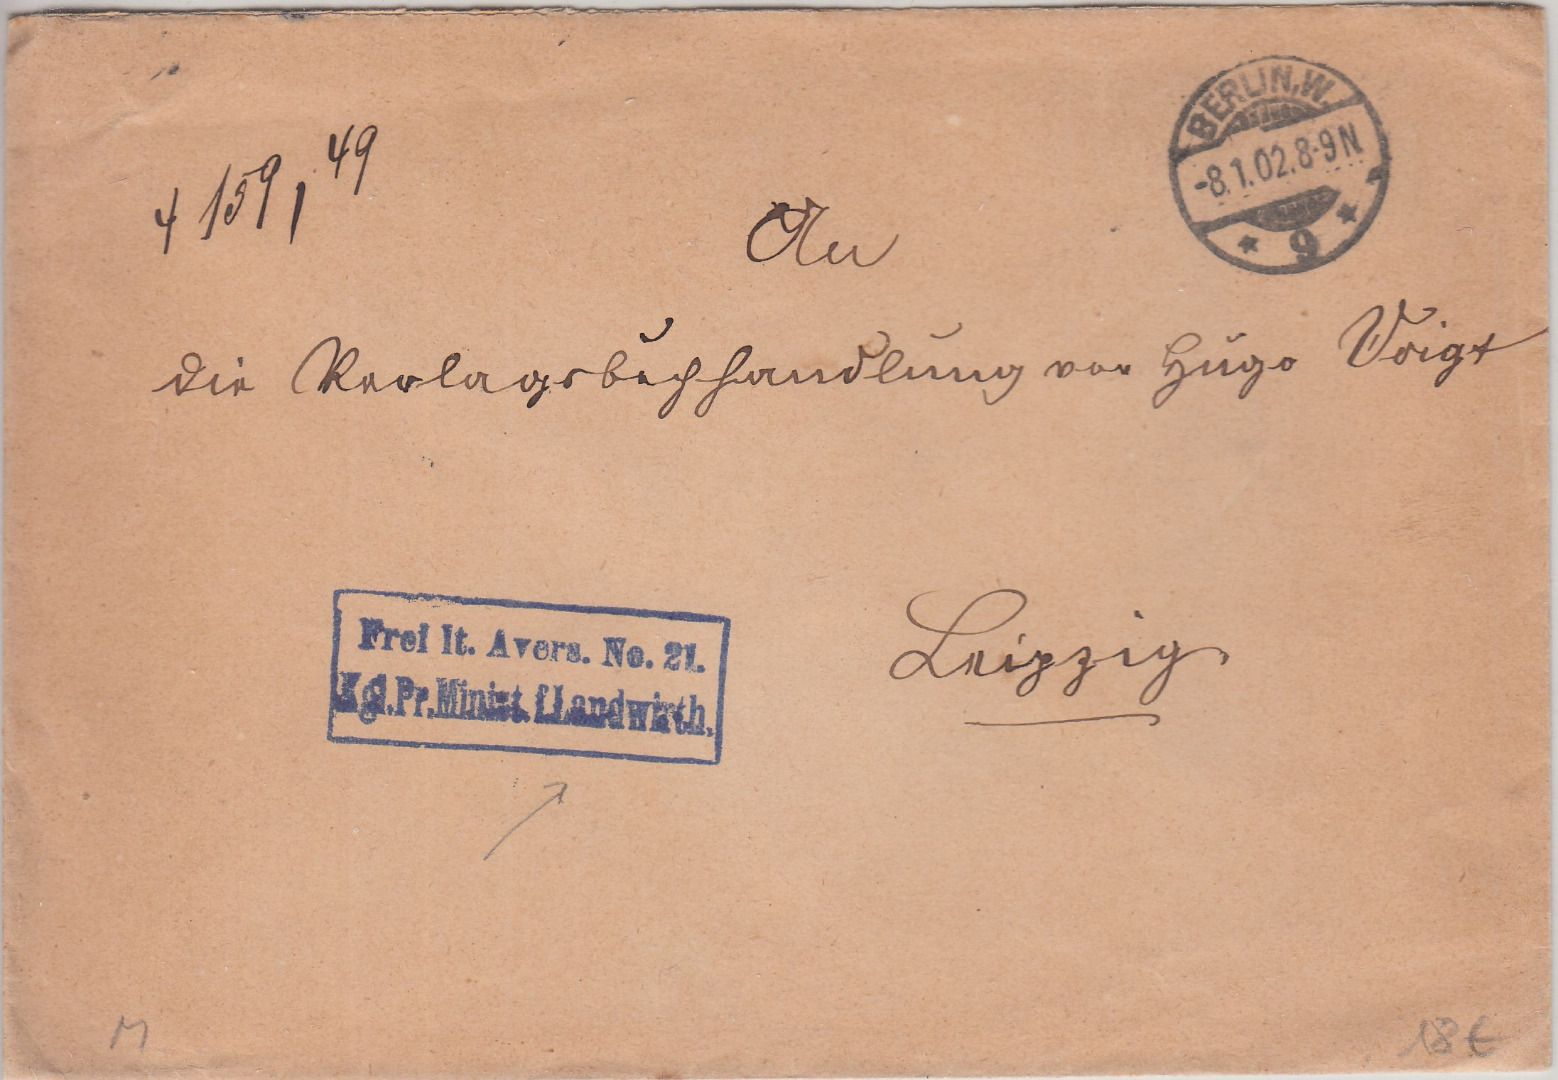 BERLIN.W.
-8.1.02.8-9N
* 9 *
4 159, 49
An
die Verlagsbuchhandlung von Hugo Voigt
Leipzig.
Frei lt. Avers. No. 21.
Kgl.Pr.Minist.f.Landwirth.
M
18 €